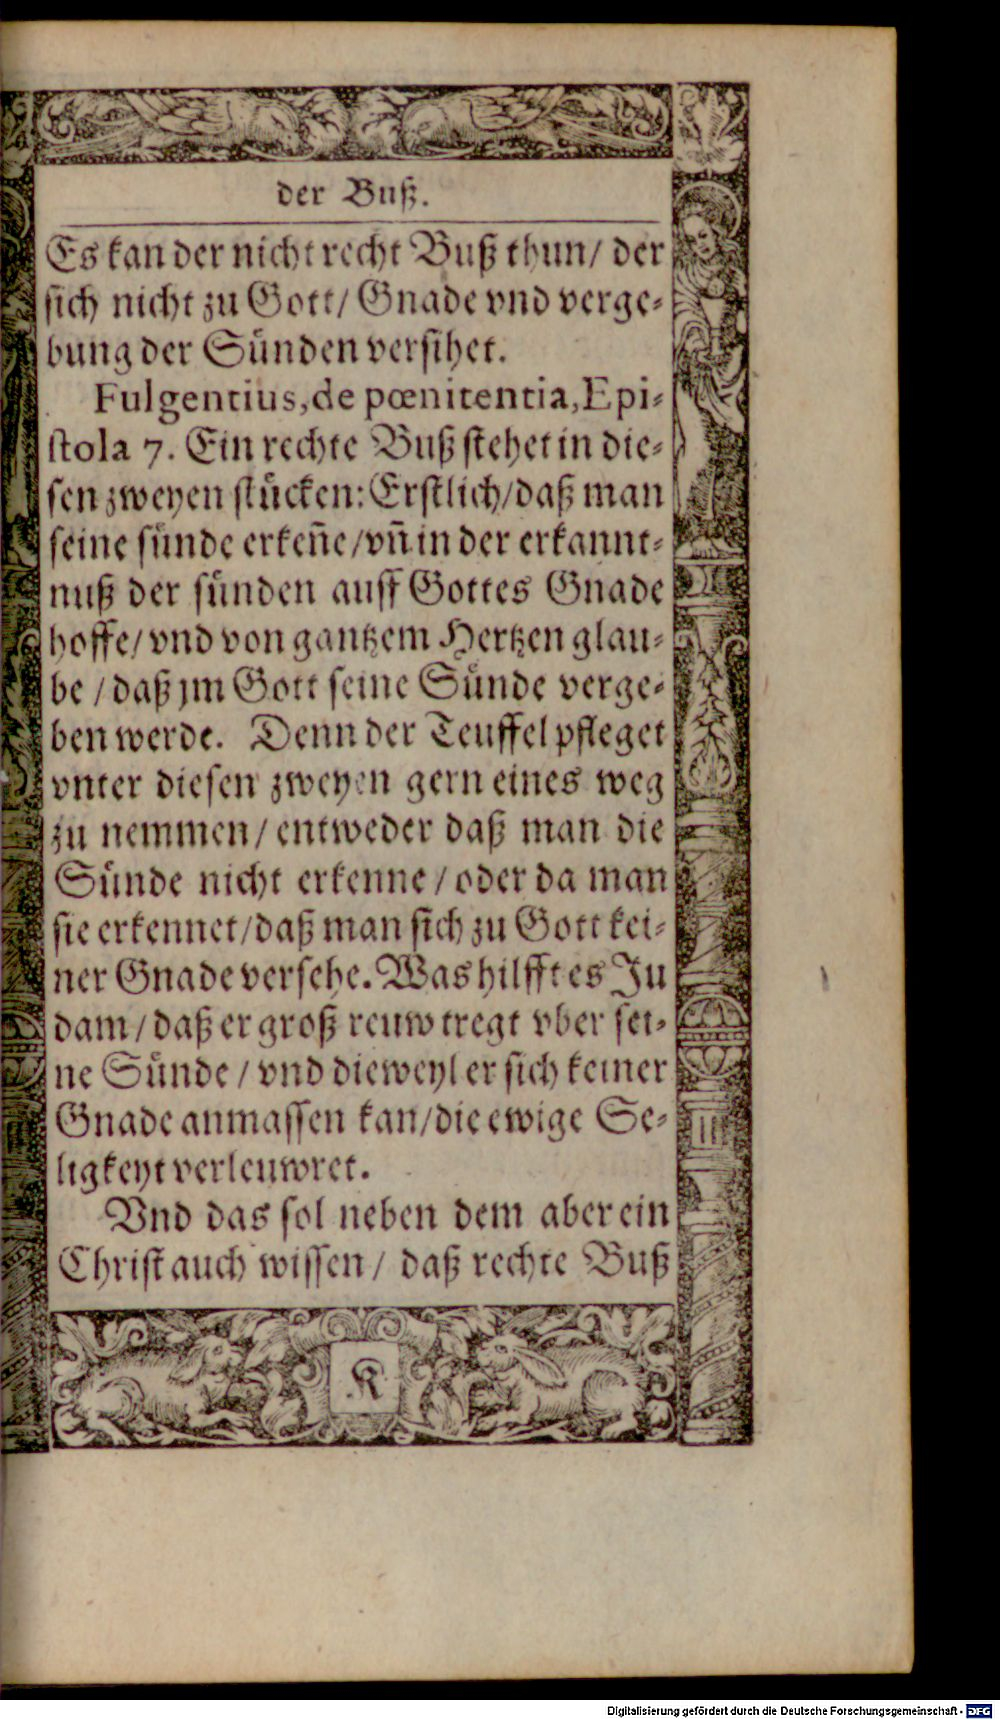 der Buß.
Es kan der nicht recht Buß thun/ der
sich nicht zu Gott/ Gnade vnd verge-
bung der Sünden versihet.
Fulgentius, de pœnitentia, Epi-
stola 7. Ein rechte Buß stehet in die-
sen zweyen stücken: Erstlich/ daß man
seine sünde erkeñe/ vñ in der erkannt-
nuß der sünden auff Gottes Gnade
hoffe/ vnd von gantzem Hertzen glau-
be / daß jm Gott seine Sünde verge-
ben werde. Denn der Teuffel pfleget
vnter diesen zweyen gern eines weg
zu nemmen/ entweder daß man die
Sünde nicht erkenne / oder da man
sie erkennet/ daß man sich zu Gott kei-
ner Gnade versehe. Was hilfft es Ju
dam/ daß er groß reuw tregt vber sei-
ne Sünde / vnd dieweyl er sich keiner
Gnade anmassen kan/ die ewige Se-
ligkeyt verleuwret.
Vnd das sol neben dem aber ein
Christ auch wissen/ daß rechte Buß
K
Digitalisierung gefördert durch die Deutsche Forschungsgemeinschaft - DFG